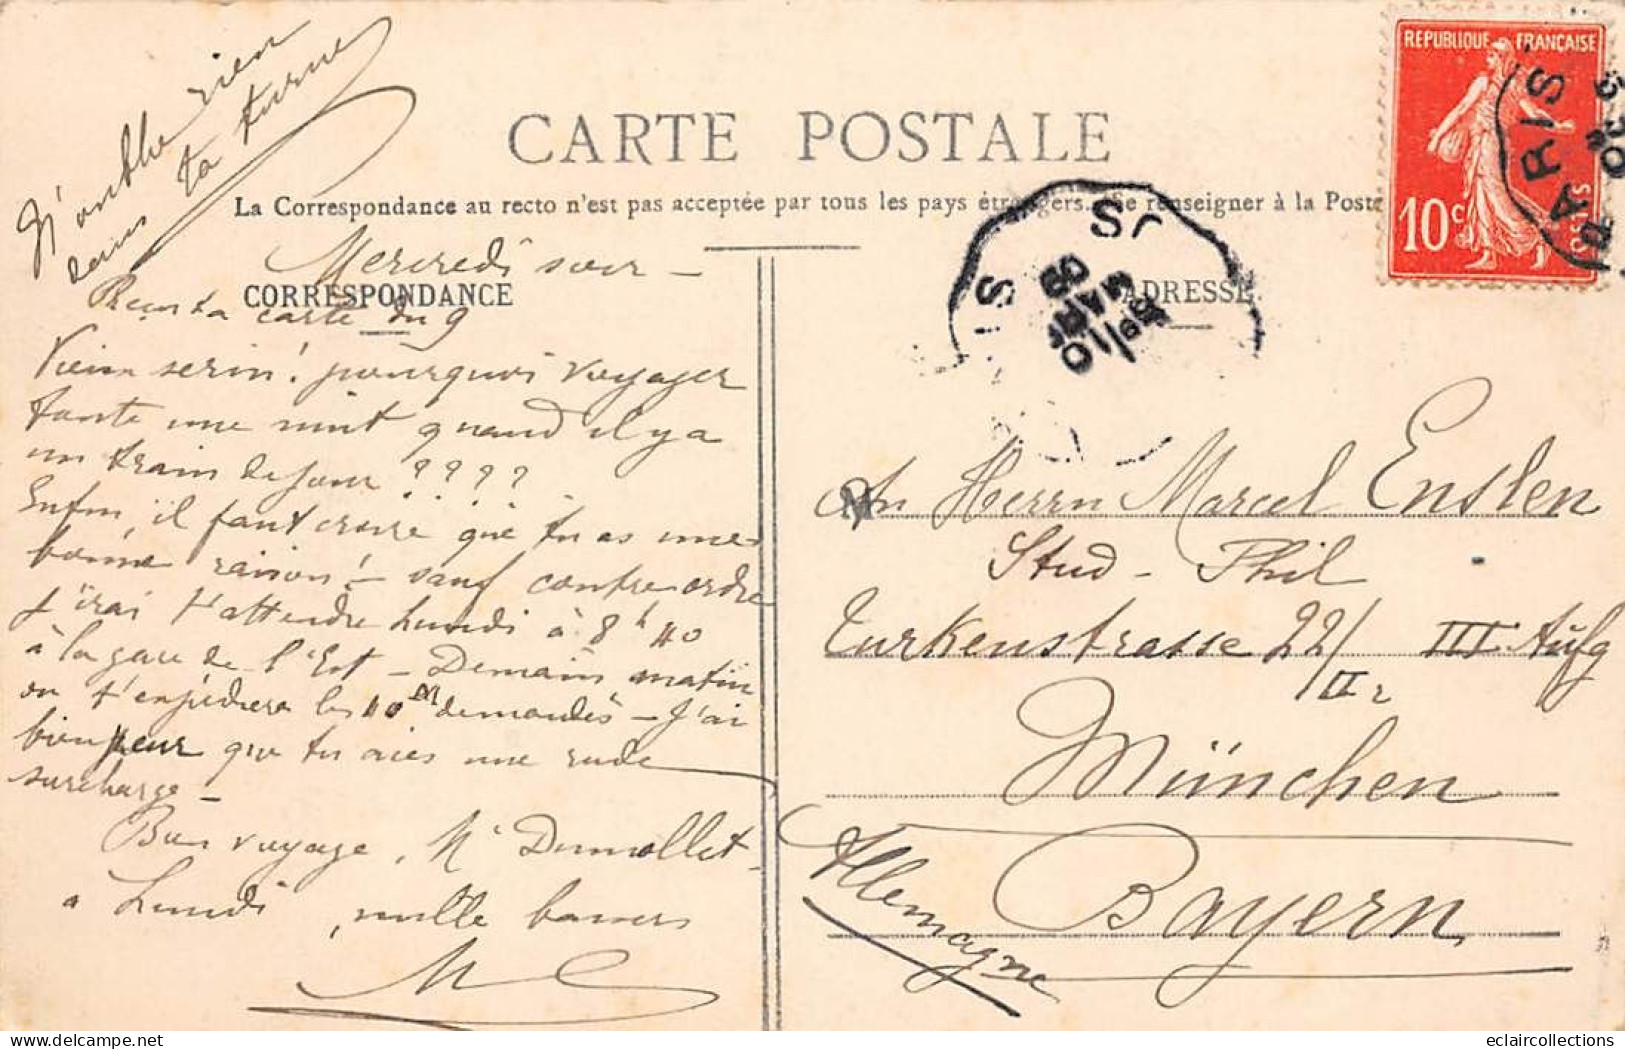 N'oublie rien
dans ta turne
CARTE POSTALE
La Correspondance au recto n'est pas acceptée par tous les pays étrangers. Se renseigner à la Poste
REPUBLIQUE FRANÇAISE
10c
PARIS
Mercredi soir -
CORRESPONDANCE
ADRESSE
Reçu ta carte du 9
Vieux serin! pourquoi voyager
toute une nuit quand il y a
un train de jour ????
Enfin, il faut croire que tu as une
bonne raison! - sauf contre ordre
j'irai t'attendre Lundi à 8h 40
à la gare de l'Est - Demain matin
on t'expédiera les 40 M demandés - J'ai
bien peur que tu aies une rude
surcharge -
Bon voyage, Mr Dumollet -
à Lundi, mille baisers
M
An Herrn Marcel Enslen
Stud - Phil
Turkenstrasse 22/ III Aufg
II r
München
Bayern
Allemagne
eclaircollections